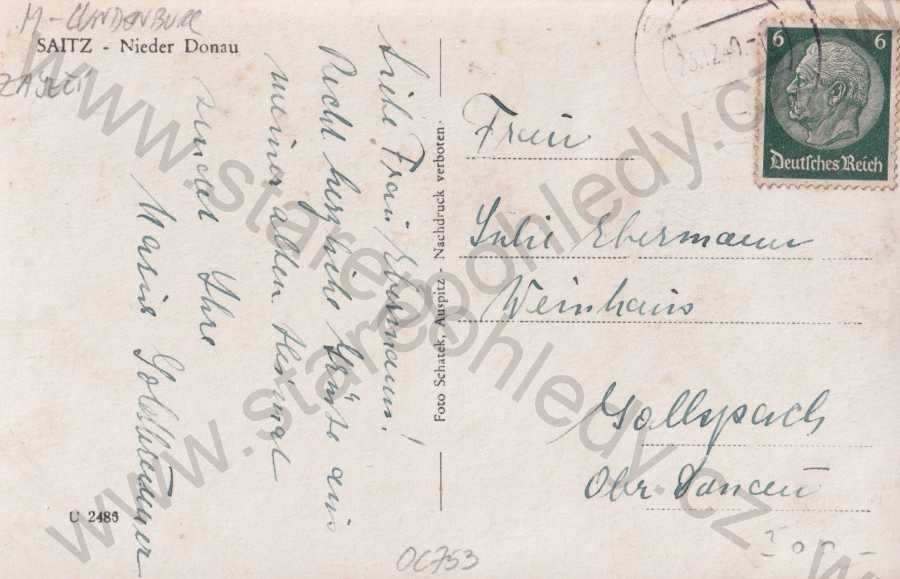 M-LUNDENBURG
SAITZ - Nieder Donau
ZAJEČÍ
Liebe Frau Ebermann!
Recht herzliche Grüße aus
meiner alten Heimat
sendet Ihre
Marie
U 2485
Foto Schatek, Auspitz - Nachdruck verboten.
6 6
Deutsches Reich
Frau
Julie Ebermann
Weinhaus
Gallspach
Ober Donau
OC753
www.starepohledy.cz
www.starepohledy.cz
www.starepohledy.cz